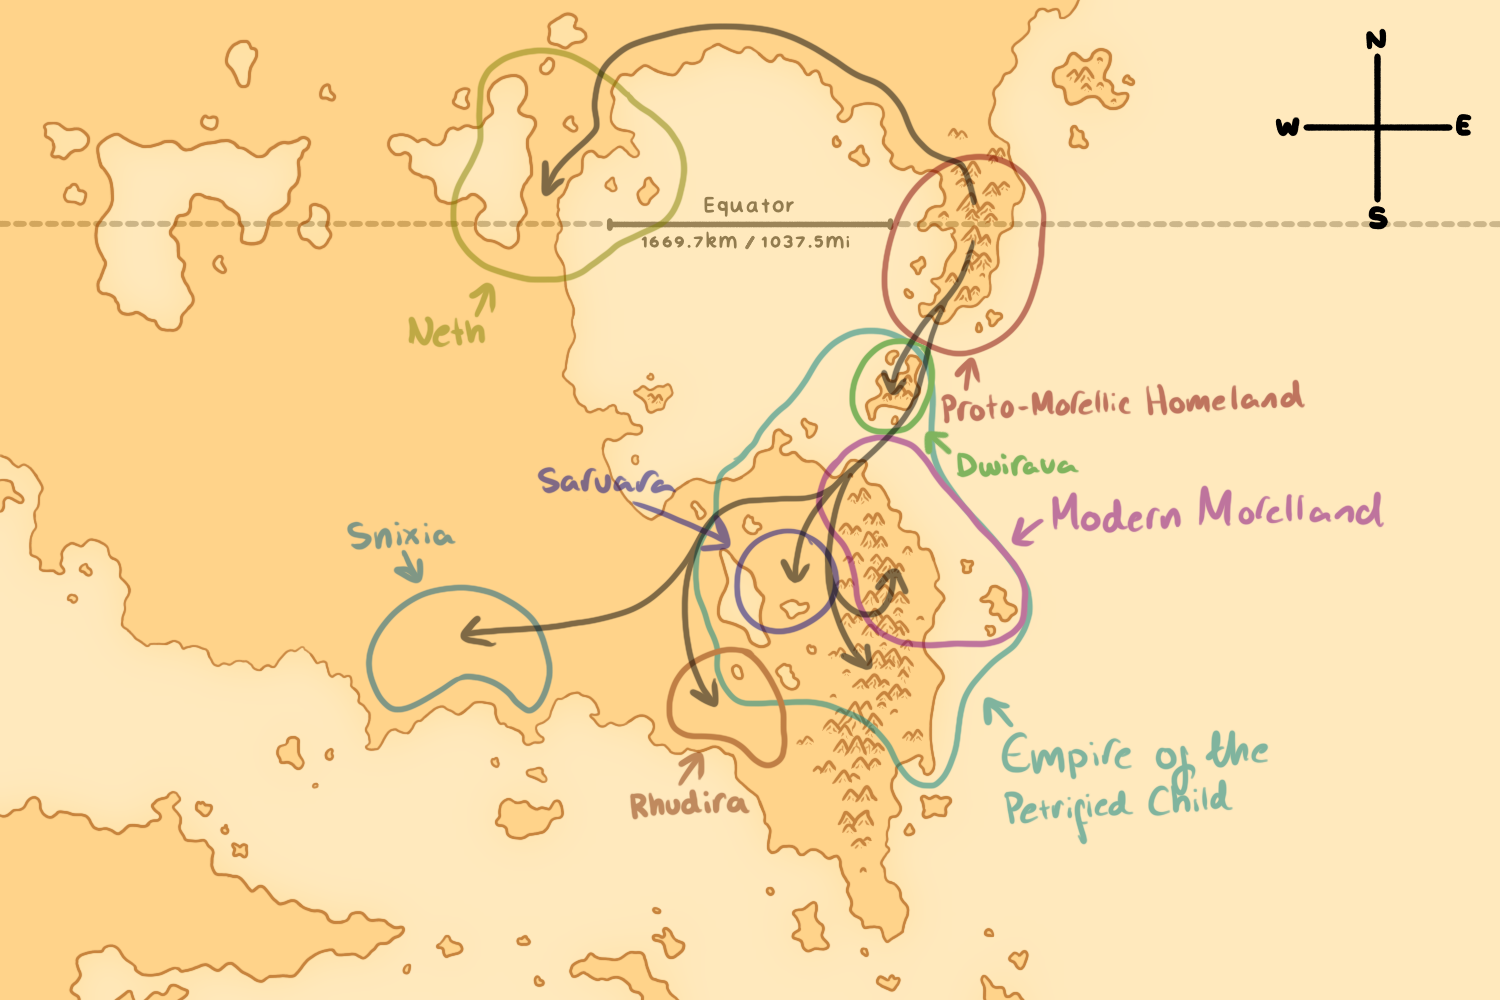 N
W E
S
Equator
1669.7km / 1037.5mi
Neth
Proto-Morellic Homeland
Dwirava
Sarvara
Modern Morelland
Snixia
Empire of the
Petrified Child
Rhudira